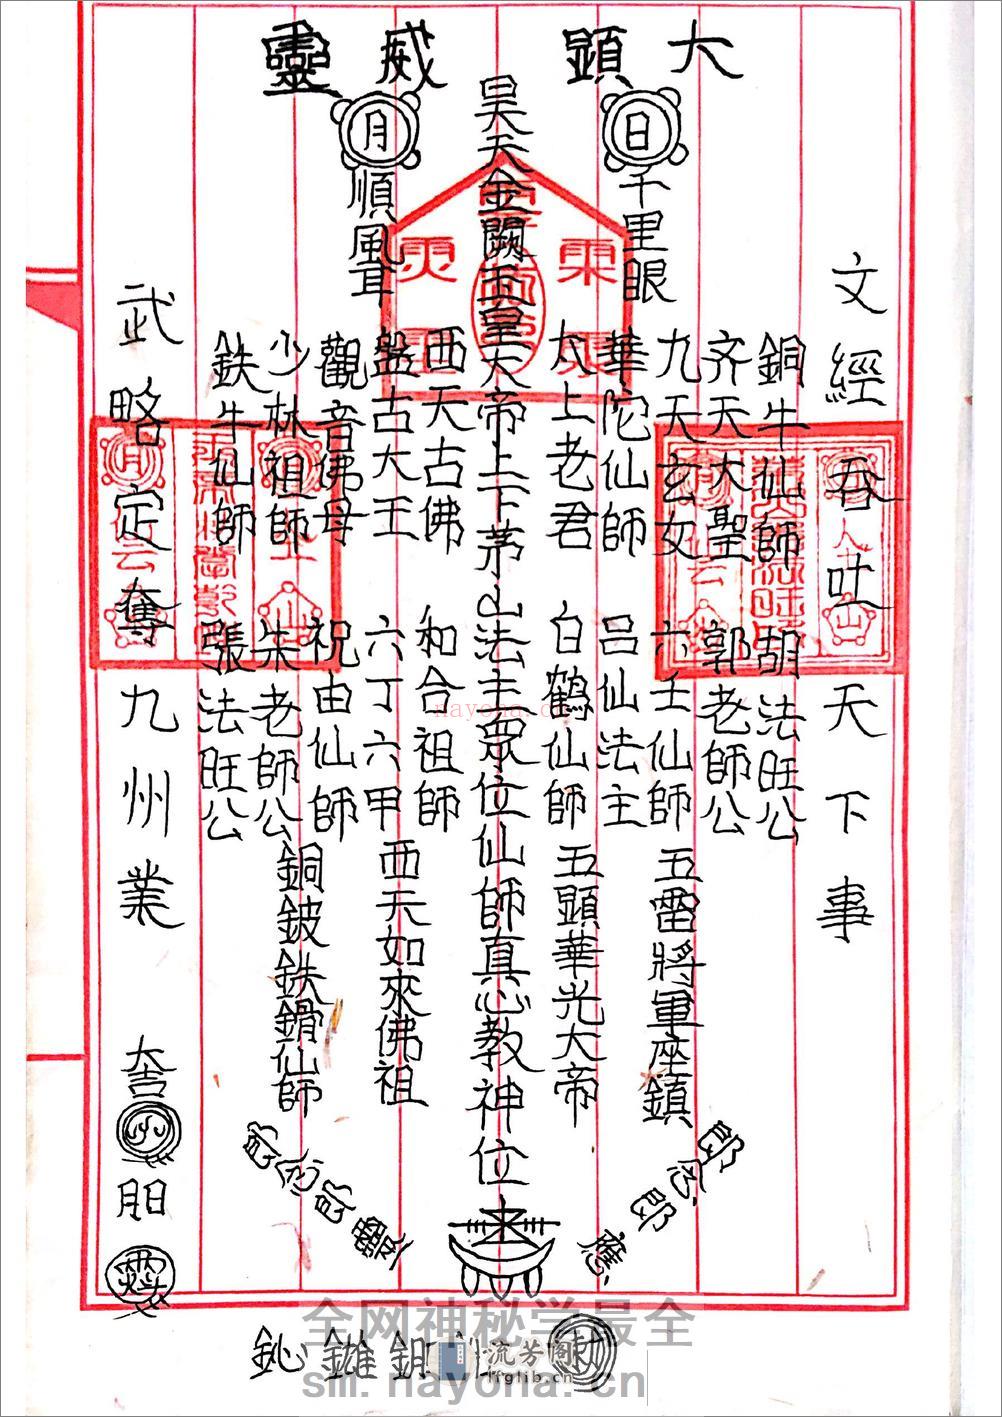 大顯威靈
文經吞吐天下事
銅牛仙師
胡法旺公
齐天大聖
郭老師公
九天玄女
六壬仙師
五雷將軍座鎮
日
千里眼
華陀仙師
呂仙法主
太上老君
白鶴仙師
五顯華光大帝
昊天金闕玉皇大帝上下茅山法主眾位仙師真心教神位
西天古佛
和合祖師
月
順風耳
盤古大王
六丁六甲
西天如來佛祖
觀音佛母
祝由仙師
少林祖師
朱老師公
銅鈹鉄鎻仙師
鉄牛仙師
張法旺公
武略定奪九州業
全网神秘学最全
流芳阁
lfglib.cn
sm.nayona.cn
nayona.cn